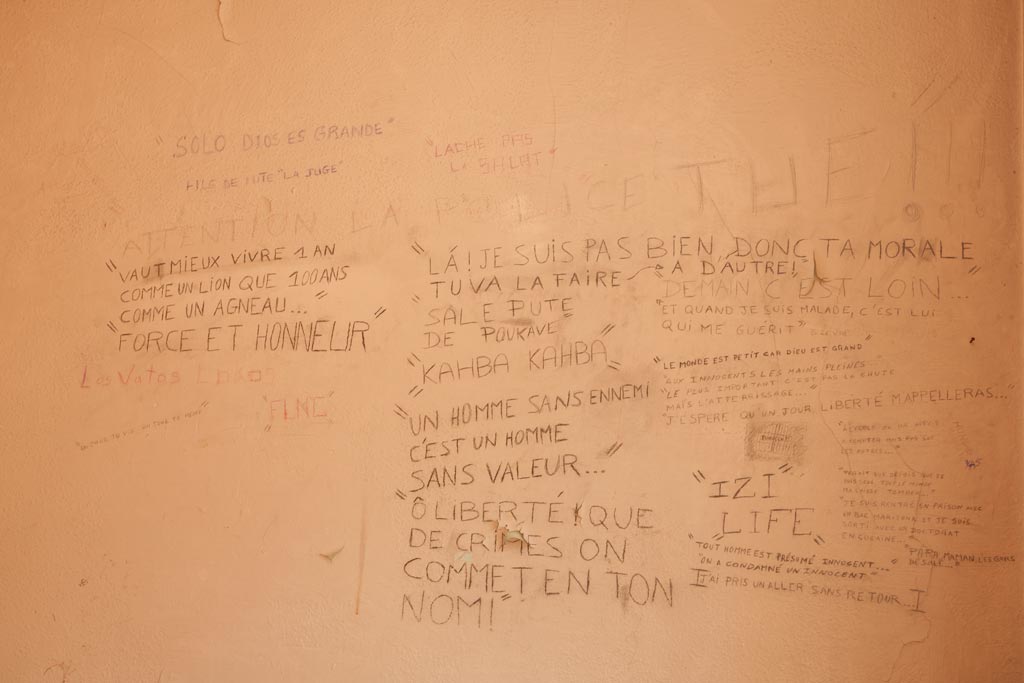 "SOLO DIOS ES GRANDE"
FILS DE PUTE "LA JUGE"
"LACHE PAS
LA SALAT"
ATTENTION LA POLICE TUE!!!
"VAUT MIEUX VIVRE 1 AN
COMME UN LION QUE 100 ANS
COMME UN AGNEAU..."
"FORCE ET HONNEUR"
Los Vatos Locos
"FLNC"
"LÁ! JE SUIS PAS BIEN, DONC TA MORALE
TU VA LA FAIRE A D'AUTRE!"
"SALE PUTE
DE POUKAVE"
"KAHBA KAHBA"
"UN HOMME SANS ENNEMI
C'EST UN HOMME
SANS VALEUR..."
"Ô LIBERTÉ! QUE
DE CRIMES ON
COMMET EN TON
NOM!"
"DEMAIN C'EST LOIN..."
"ET QUAND JE SUIS MALADE, C'EST LUI
QUI ME GUÉRIT"
"LE MONDE EST PETIT CAR DIEU EST GRAND"
"AUX INNOCENTS LES MAINS PLEINES"
"LE PLUS IMPORTANT C'EST PAS LA CHUTE
MAIS L'ATTERRISSAGE..."
"J'ESPERE QU'UN JOUR LIBERTÉ M'APPELLERAS...
"IZI
LIFE"
"JE SUIS RENTRÉ EN PRISON AVEC
UN BAC MARIJUANA ET JE SUIS
SORTI AVEC UN DOCTORAT
EN COCAINE..."
"PAPA, MAMAN, LES GARS
DÉSOLÉ..."
"TOUT HOMME EST PRÉSUMÉ INNOCENT..."
"ON A CONDAMNÉ UN INNOCENT"
J'AI PRIS UN ALLER SANS RETOUR...